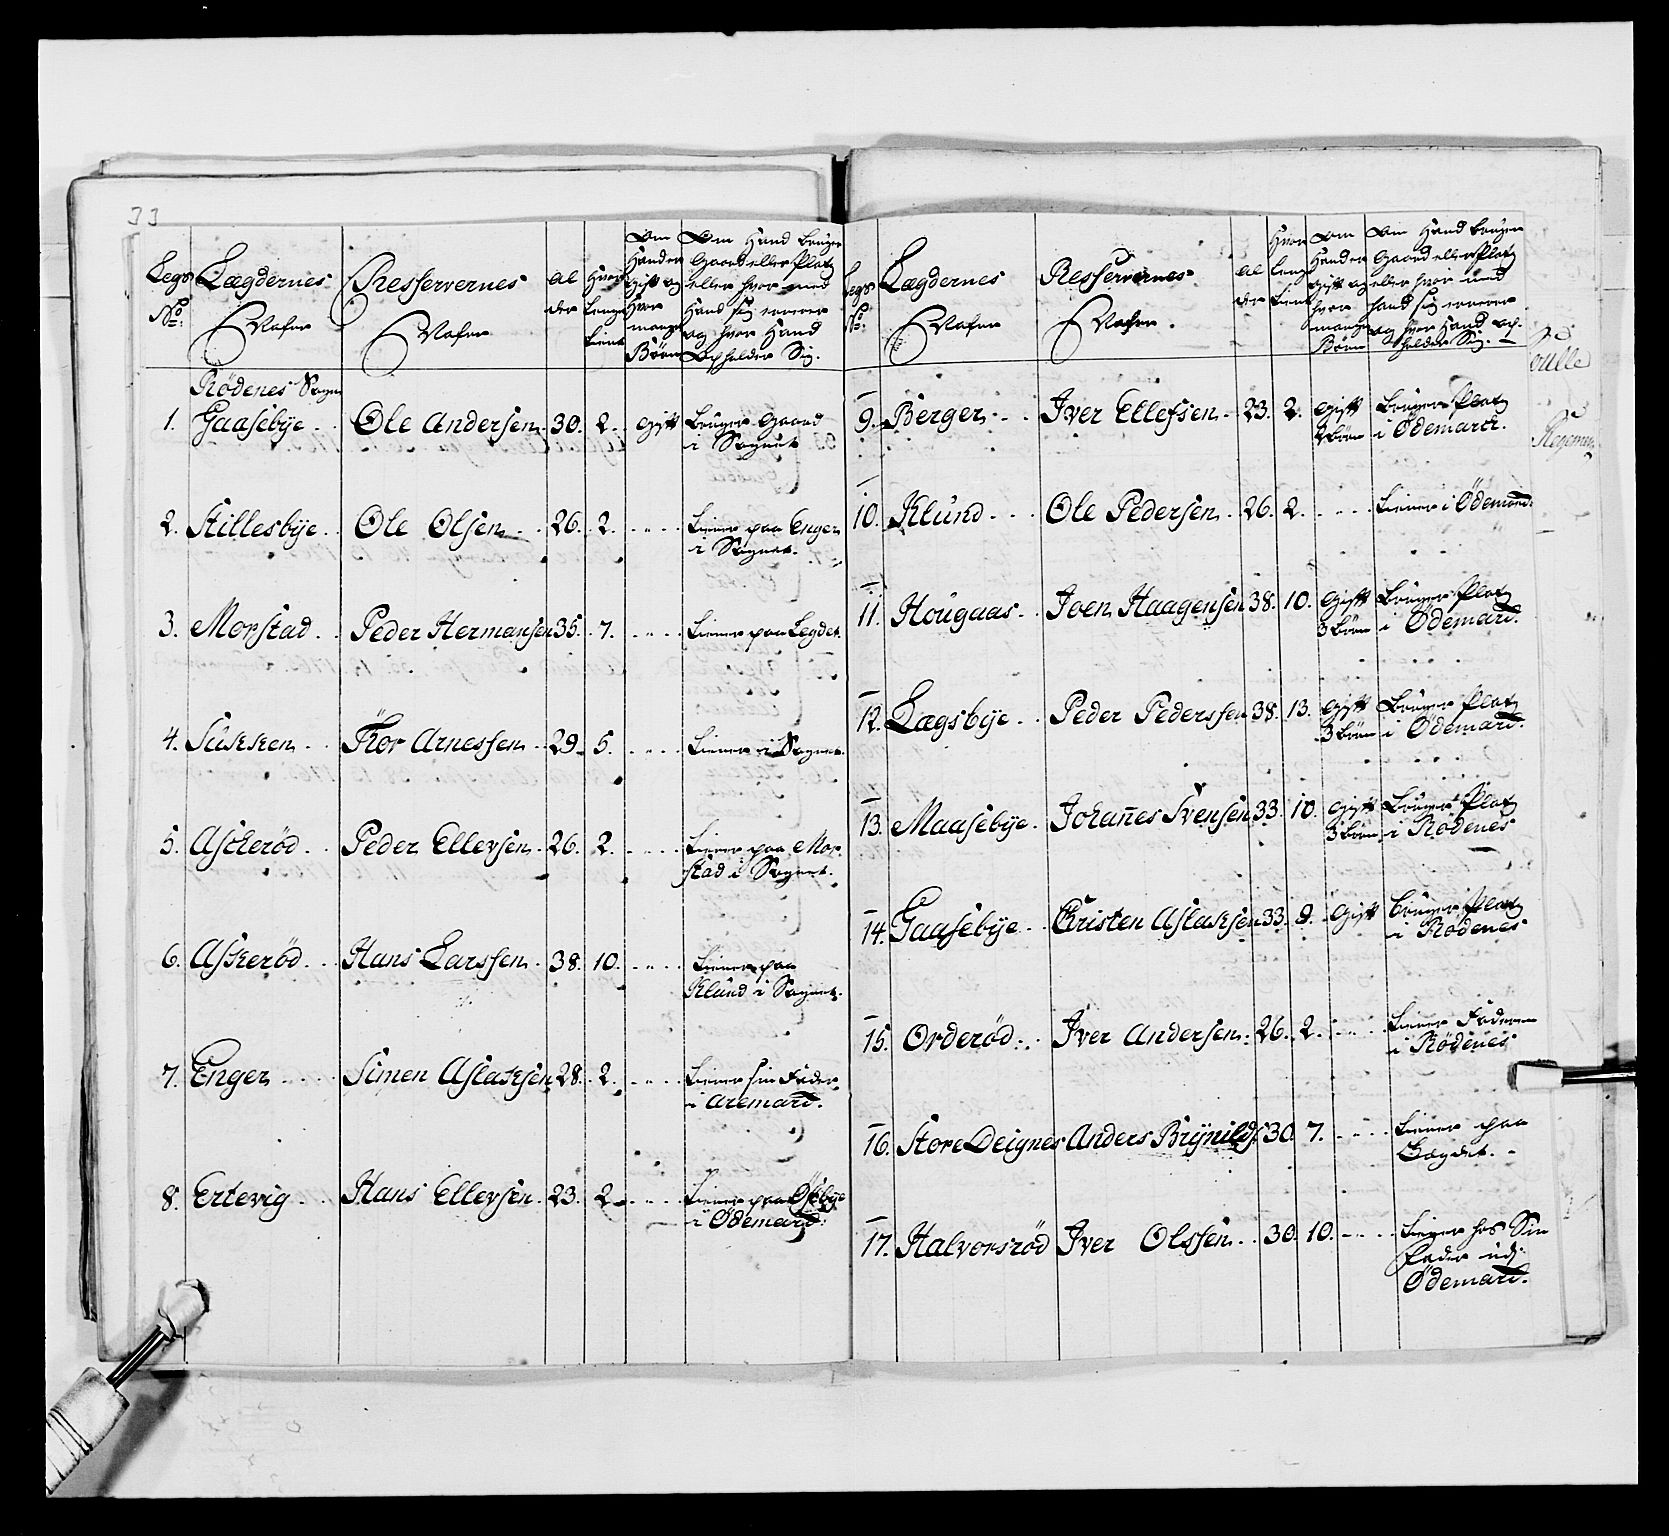 33
Legs No: Lægdernes Nafne Resservernes Nafne Al der Hvor lenge tient Om Hand er gift og Hvor mange Børn Om Hand bruger Gaard eller Platz eller hvor med Hand sig ernerer og hvor Hand Opholder Sig.
Rødenes Sogn
1. Gaasebye Ole Andersen 30. 2. gift bruger Gaard
i Sognet
2. Killesbye Ole Olsen 26. 2. tiener paa Enger
i Sognet.
3. Morstad Peder Hermansen 35. 7. tiener paa Legdet.
4. Sukken Thor Arnessen 29. 5. tiener i Sognet.
5. Askerød Peder Ellevsen 26. 2. tiener paa Mor
stad i Sognet.
6. Askerød Hans Larssen 38. 10. tiener paa
Klund i Sognet.
7. Enger Simen Aslaksen 28. 2. tiener sin Fader
i Aremard.
8. Ertevig Hans Ellevsen 23. 2. tiener paa Østbye
i Ødemard.
Legs No: Lægdernes Nafne Resservernes Nafne. Al der Hvor leng tient Om Hand er gift og hvor mange Børn Om Hand bruger Gaard eller Platz eller hvor med hand sig ernerer og hvor Hand op-holder Sig.
9. Berger Iver Ellefsen 23. 2. gift bruger Platz
2 børn i Ødemarck.
10. Klund Ole Pedersen 26. 2. tiener i Ødemard.
11. Hougaas Joen Haagensen 38. 10. gift bruger Platz
3 børn i Ødemard.
12. Lægsbye Peder Pederssen 38. 13. gift bruger Platz
3 børn i Ødemard.
13. Maasebye Johan̄es Svensen 33. 10. gift bruger Platz
3 børn i Rødenes
14. Gaasebye Christen Aslaksen 33. 9. gift bruger Platz
i Rødenes
15. Orderød Iver Andersen 26. 2. tiener Faderen
i Rødenes
16. Store Deignes Anders Brynilds 30. 7. tiener paa
Lægdet.
17. Halvorsrød Iver Olssen 30. 10. tiener hos Sin
Fader udj
Ødemard.
oulle
Regemen